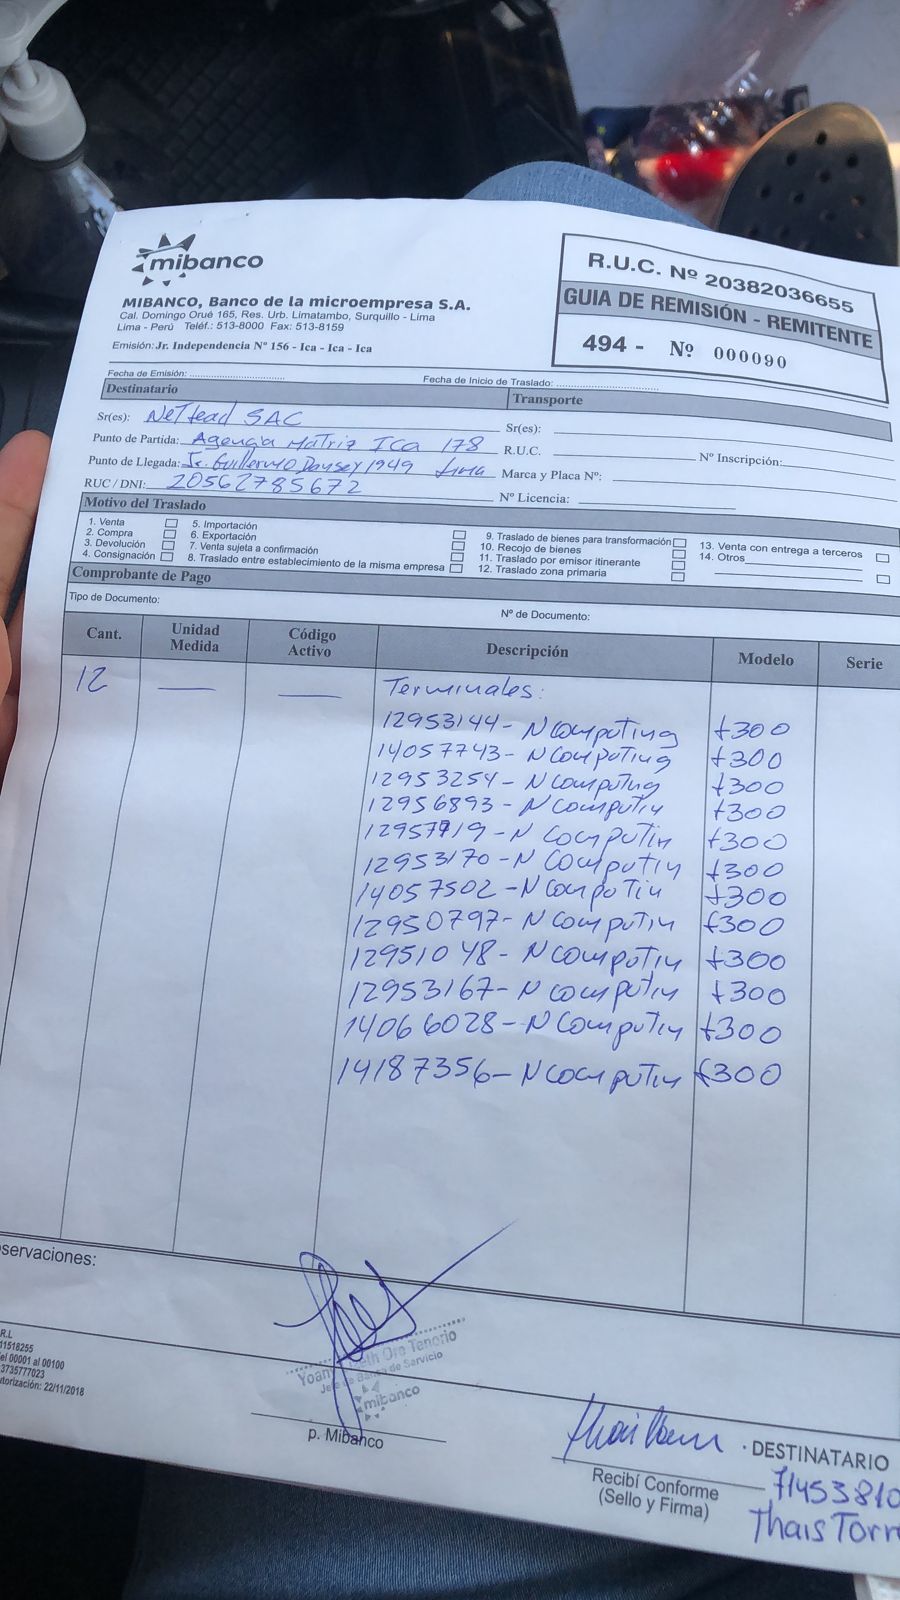 mibanco
MIBANCO, Banco de la microempresa S.A.
Cal. Domingo Orué 165, Res. Urb. Limatambo, Surquillo - Lima
Lima - Perú Teléf.: 513-8000 Fax: 513-8159
Emisión: Jr. Independencia Nº 156 - Ica - Ica - Ica
R.U.C. Nº 20382036655
GUIA DE REMISIÓN - REMITENTE
494 - Nº 000090
Fecha de Emisión: Fecha de Inicio de Traslado:
Destinatario Transporte
Sr(es): Nettead SAC Sr(es):
Punto de Partida: Agencia Matriz ICa 178 R.U.C. Nº Inscripción:
Punto de Llegada: Jr. Guillermo Dansey 1949 Lima Marca y Placa Nº:
RUC / DNI: 20562785672 Nº Licencia:
Motivo del Traslado
1. Venta 5. Importación 9. Traslado de bienes para transformación 13. Venta con entrega a terceros
2. Compra 6. Exportación 10. Recojo de bienes 14. Otros
3. Devolución 7. Venta sujeta a confirmación 11. Traslado por emisor itinerante
4. Consignación 8. Traslado entre establecimiento de la misma empresa 12. Traslado zona primaria
Comprobante de Pago
Tipo de Documento: Nº de Documento:
Cant. Unidad Medida Código Activo Descripción Modelo Serie
12 — — Terminales:
12953144 - N Computing t300
14057743 - N Computing t300
12953254 - N Computing t300
12956893 - N Computin t300
12957719 - N Computin t300
12953170 - N Computin t300
14057502 - N Computin t300
12950797 - N Computin t300
12951048 - N Computin t300
12953167 - N Computin t300
14066028 - N Computin t300
14187356 - N Computin t300
servaciones:
R.L
11518255
el 00001 al 00100
3735777023
torización: 22/11/2018
Oro Tenorio
de Servicio
mibanco
p. Mibanco
DESTINATARIO
Recibí Conforme
(Sello y Firma)
71453810
Thais Torr